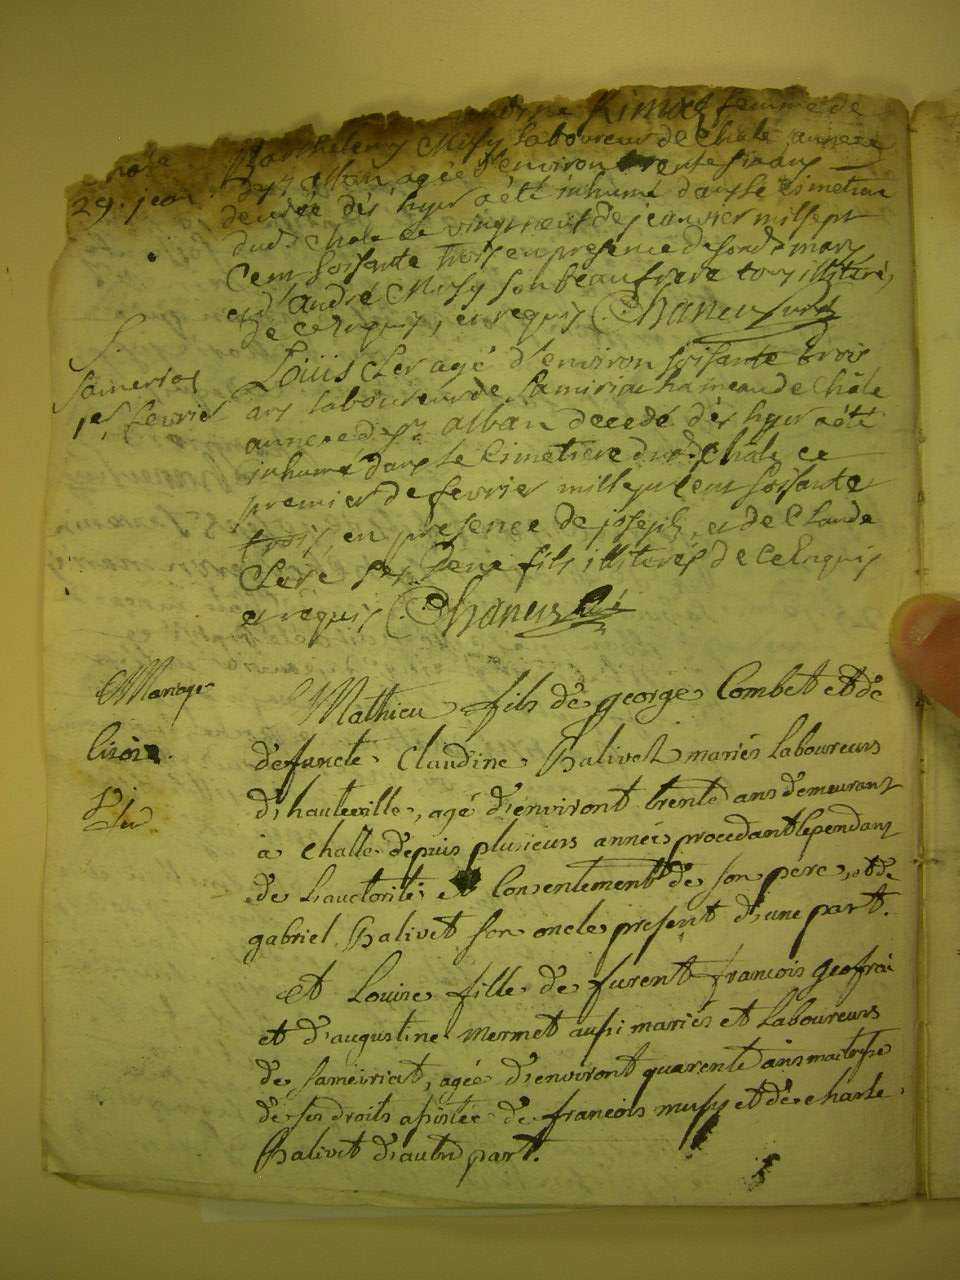 femme de
Barthelemy Musy laboureur de Chale annexe
29. jean. de st alban, agée d'environ trente six ans
decedée dès hyer a été inhumé dans le cimetiere
dud. Chale ce vingt neuf de jeanvier mil sept
cent soisante trois en presence de sond. mary
et d'andré Musy son beau frere tous illiterés
de ce enquis, et requis Chaneu curé
Louis Cler agé d'environ soisante trois
ans laboureur de Samiria hameau de Châle
1er, fevrier
annexe de st alban decedé dès hyer a été
inhumé dans le Cimetiere dud. Châle ce
premier de fevrier mil sept cent soisante
trois, en presence de joseph, et de Claude
Clere ses deux fils illiterés de ce enquis
et requis Chaneu
Mariage
Mathieu fils de george Combet et de
defuncte Claudine Balivet mariés laboureurs
d'hauteville, agé d'environt trente ans demeurant
à challe depuis plusieurs années procedant
de L'auctorité et Consentement de son pere, et de
gabriel Balivet son oncle present d'une part.
Et Louise fille de furent francois geofrai
et d'augustine mermet aussi mariés et Laboureurs
de Sameiriat, agée d'environt quarente ans maitresse
de ses droits asistée de francois musy et de charle
Balivet d'autre part.